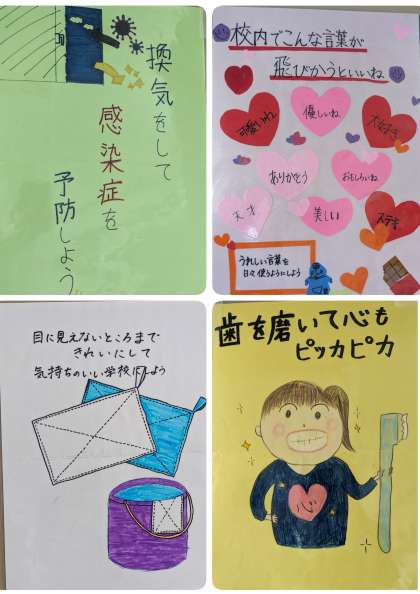 換気をして
感染症を
予防しよう。
校内でこんな言葉が
飛びかうといいね
可愛いね
優しいね
大好き
ありがとう
おもしろいね
天才
美しい
ステキ
うれしい言葉を
日々使うようにしよう
目に見えないところまで
きれいにして
気持ちのいい学校にしよう
歯を磨いて心も
ピッカピカ
心